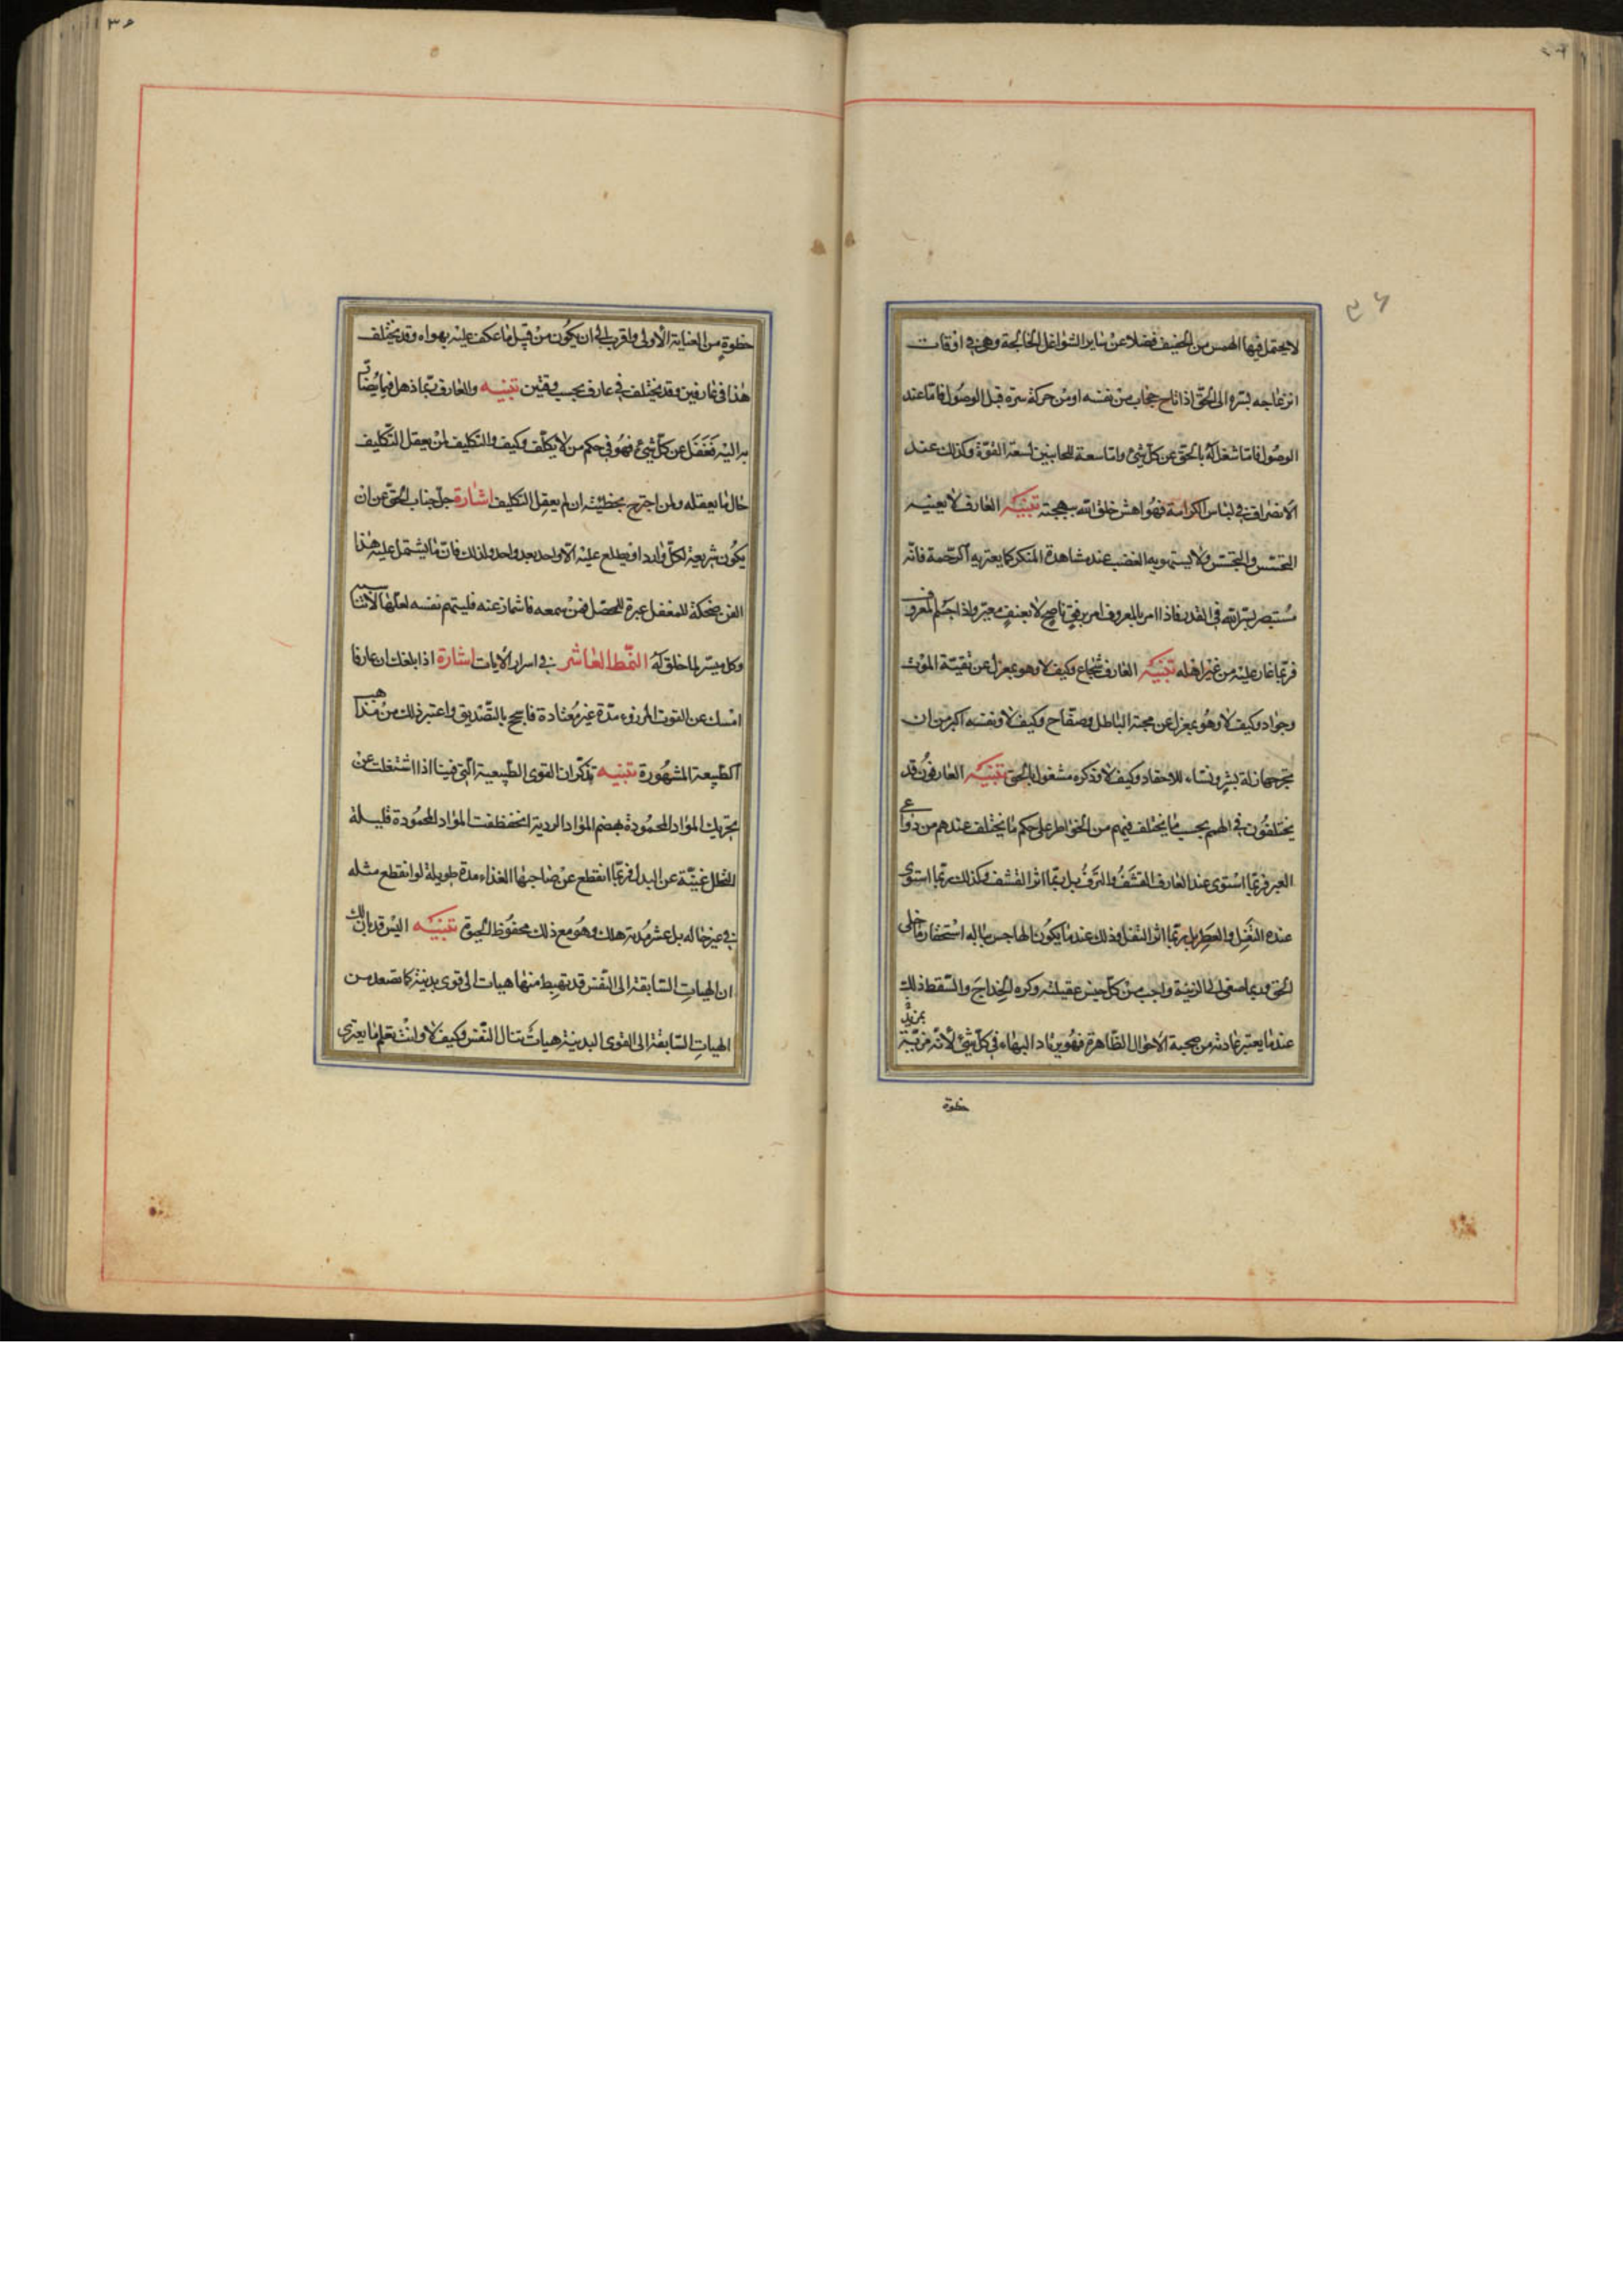 لا يحتمل فيها الهمس من الحفيف فضلا عن ساير الشواغل الخالجة وهى فى اوقات
انزعاجه بسره الى الحق اذا تاح حجاب من نفسه او من حركة سره قبل الوصول فاما عند
الوصول فاما شغل له بالحق عن كل شئ واما سعة للجانبين لسعة القوة وكذلك عند
الانصراف فى لباس الكرامة فهو اهش خلق الله ببهجته تنبيه العارف لا يعنيه
التجسس والتحسس ولا يستهويه الغضب عند مشاهدة المنكر كما يعتريه الرحمة فانه
مستبصر بسر الله فى القدر فاذا امر بالمعروف امر برفق ناصح لا بعنف معير واذا جسم المعروف
فربما غار عليه من غير اهله تنبيه العارف شجاع وكيف لا وهو بمعزل عن تقية الموت
وجواد وكيف لا وهو بمعزل عن محبة الباطل وصفاح وكيف لا ونفسه اكبر من ان
تجرحها زلة بشر ونساء للاحقاد وكيف لا وذكره مشغول بالحق تنبيه العارفون قد
يختلفون فى الهمم بحسب ما يختلف فيهم من الخواطر على حكم ما يختلف عندهم من دواعى
العبر فربما استوى عند العارف القشف والترف بل ربما اثر القشف وكذلك ربما استوى
عنده التفل والعطر بل ربما اثر التفل وذلك عند ما يكون الهاجس بباله استحقار ما خلى
الحق وربما اصغى الى الزينة واحب من كل جنس عقيلته وكره الخداج والسقط وذلك
عند ما يعتبر عادته من صحبة الاحوال الظاهرة فهو يرتاد البهاء فى كل شئ لانه مزية
حظوة
حظوة من العناية الاولى واقرب الى ان يكون من قبيل ما عكف عليه بهواه وقد يختلف
هذا فى عارفين وقد يختلف فى عارف بحسب وقتين تنبيه والعارف ربما ذهل فيما يصار
به اليه فغفل عن كل شئ فهو فى حكم من لا يكلف وكيف والتكليف لمن يعقل التكليف
حال ما يعقله ولمن اجترح بخطيئته ان لم يعقل التكليف اشارة جل جناب الحق عن ان
يكون شريعة لكل وارد او يطلع عليه الا واحد بعد واحد ولذلك فان ما يشتمل عليه هذا
الفن ضحكة للمغفل عبرة للمحصل فمن سمعه فاشمأز عنه فليتهم نفسه لعلها لا تناسبه
وكل ميسر لما خلق له النمط العاشر فى اسرار الايات اشارة اذا بلغك ان عارفا
امسك عن القوت المرزوء مدة غير معتادة فاسجح بالتصديق واعتبر ذلك من مذاهب
الطبيعة المشهورة تنبيه تذكر ان القوى الطبيعية التى فينا اذا اشتغلت عن
تحريك المواد المحمودة بهضم المواد الردية انحفظت المواد المحمودة قليلة
التحلل غنية عن البدل فربما انقطع عن صاحبها الغذاء مدة طويلة لو انقطع مثله
فى غير حاله بل عشر مدته هلك وهو مع ذلك محفوظ الحيوة تنبيه اليس قد بان لك
ان الهيات السابقة الى النفس قد تهبط منها هيات الى قوى بدنية كما تصعد من
الهيات السابقة الى القوى البدنية هيات تنال النفس وكيف لا وانت تعلم ما يعترى